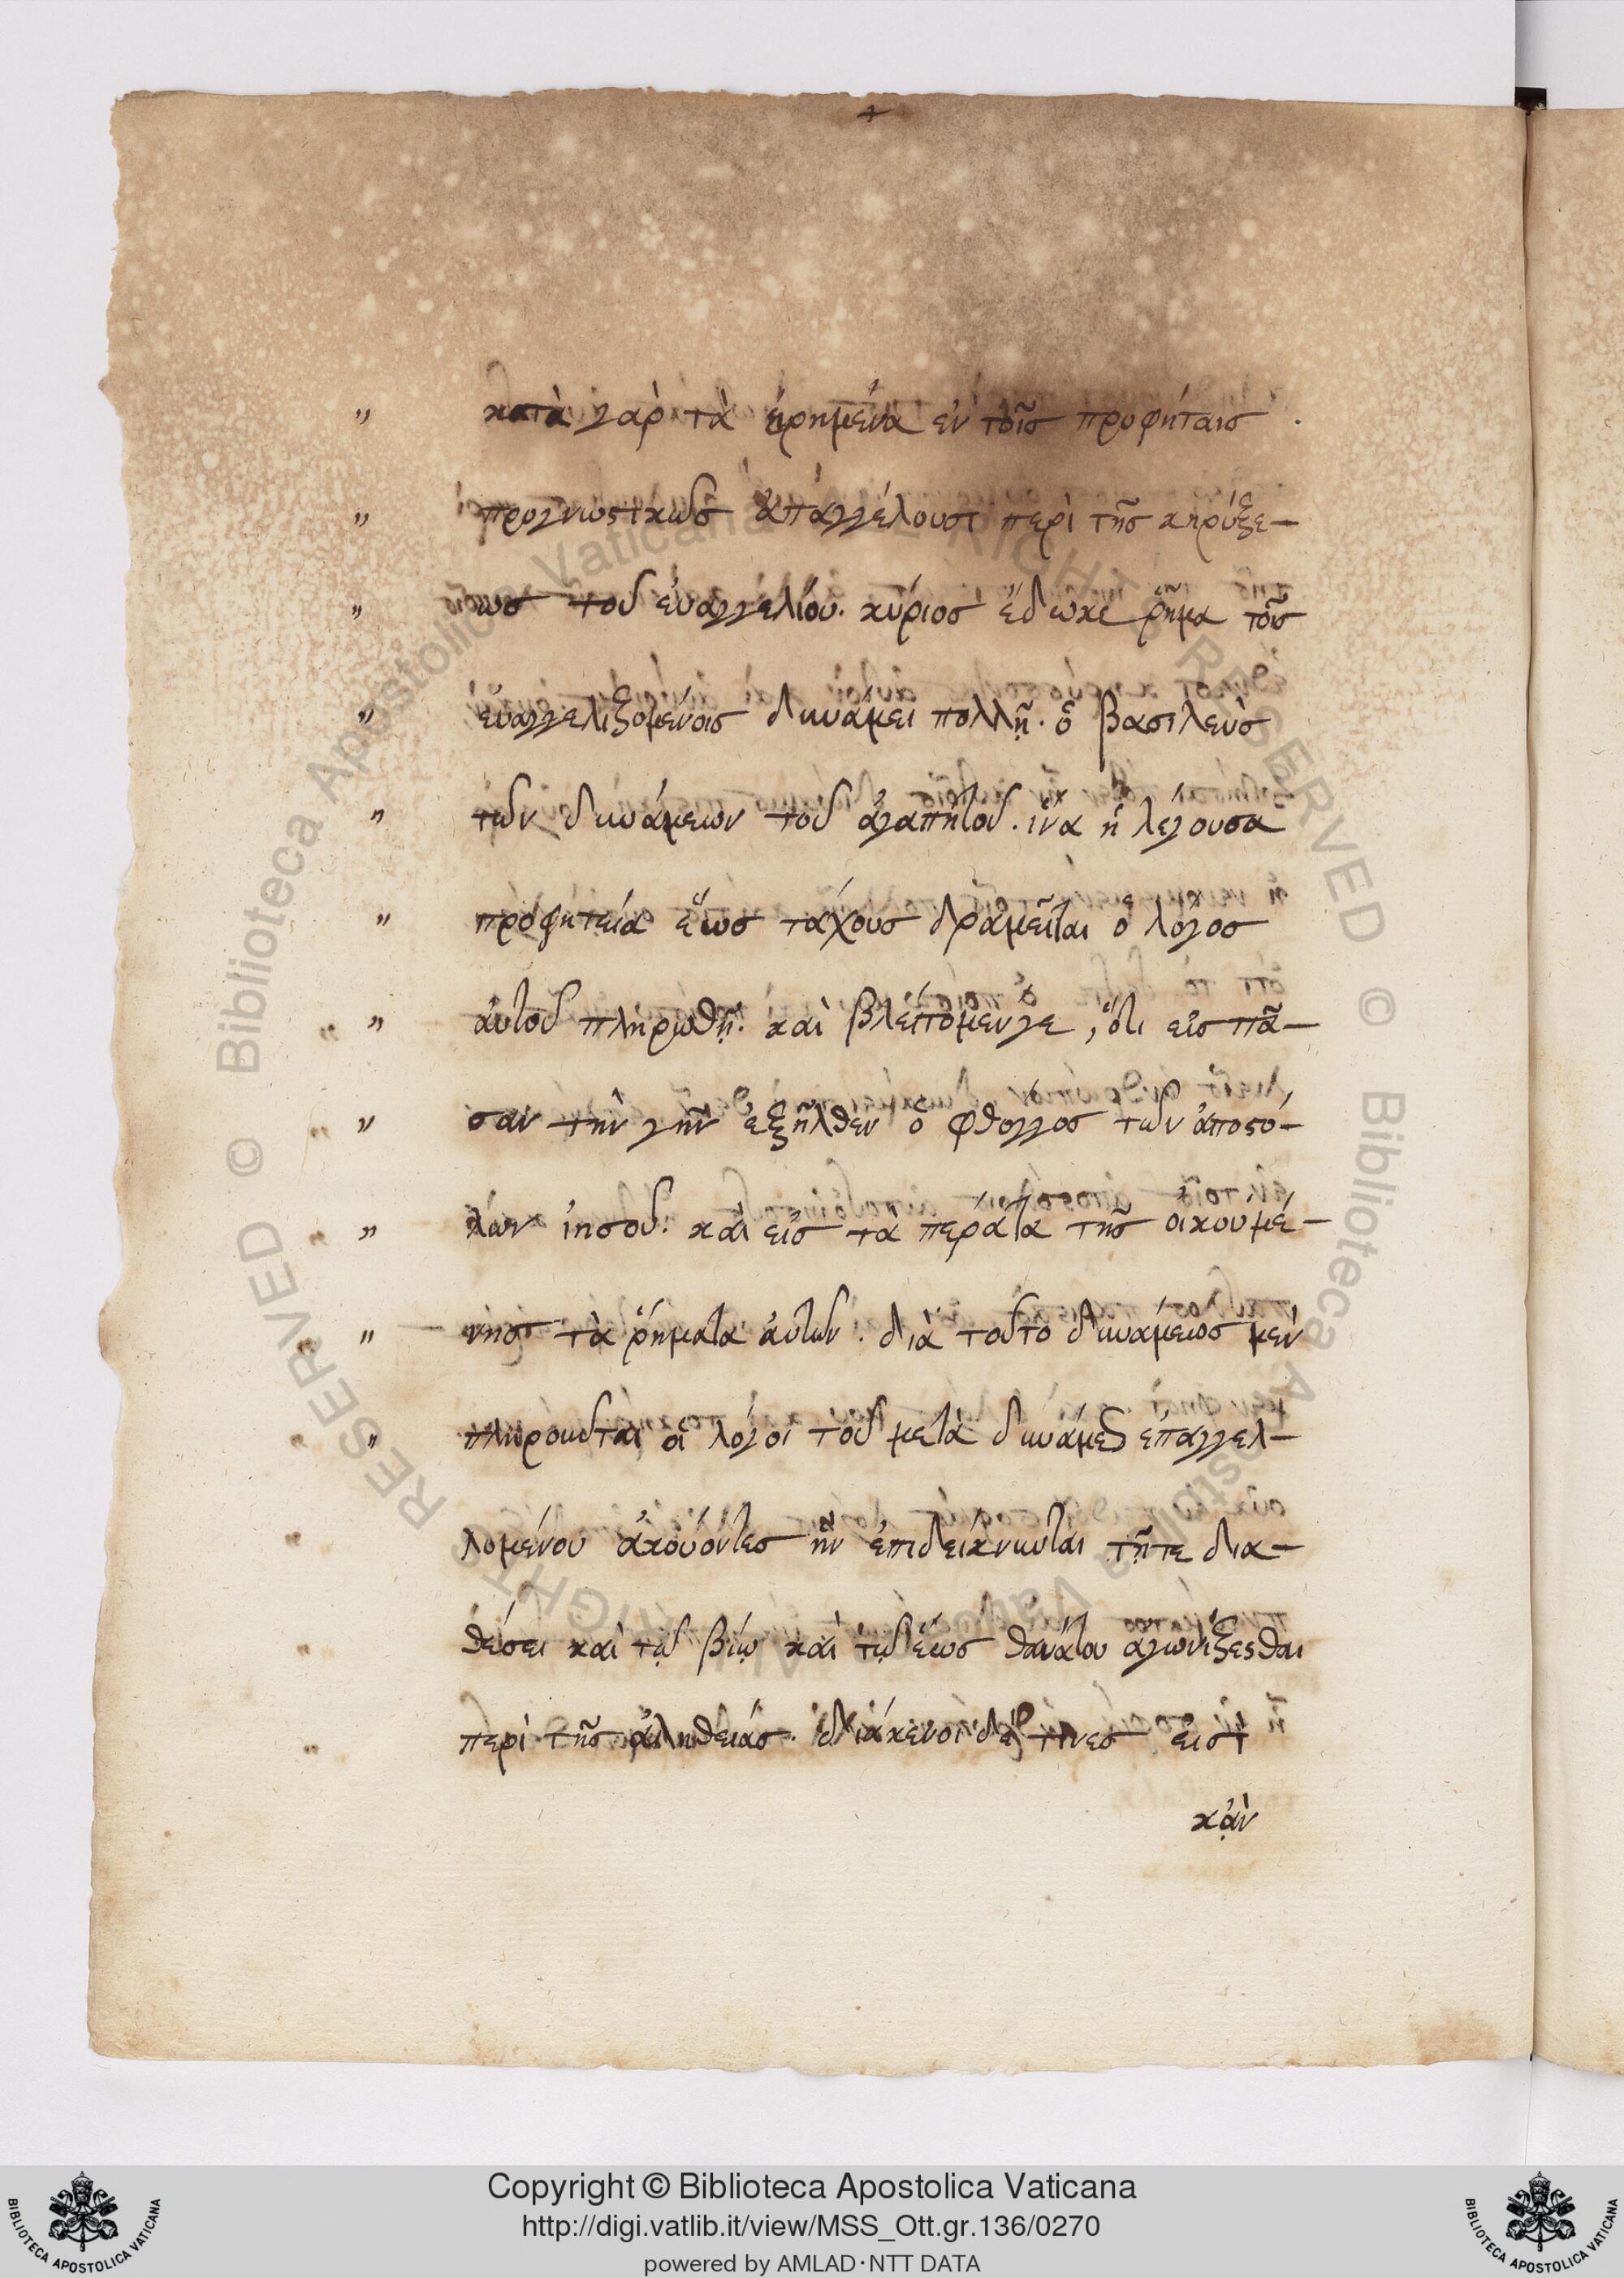 κατὰ γὰρ τὰ εἰρημένα ἐν τοῖς προφήταις
προγνωστικῶς ἀπαγγέλουσι περὶ τῆς κηρύξε-
ως τοῦ εὐαγγελίου. κύριος ἔδωκε ῥῆμα τοῖς
εὐαγγελιζομένοις δυνάμει πολλῇ. ὁ βασιλεὺς
τῶν δυνάμεων τοῦ ἀγαπητοῦ. ἵνα ἡ λέγουσα
προφητεία ἕως τάχους δραμεῖται ὁ λόγος
αὐτοῦ πληρωθῇ. καὶ βλέπομενγε, ὅτι εἰς πᾶ-
σαν τὴν γῆν ἐξῆλθεν ὁ φθόγγος τῶν ἀποστό-
λων ἰησοῦ. καὶ εἰς τὰ πέρατα τῆς οἰκουμέ-
νης τὰ ῥήματα αὐτῶν. διὰ τοῦτο δυνάμεως μὲν
πληροῦνται οἱ λόγοι τοῦ μετὰ δυνάμεως ἐπαγγελ-
λομένου ἀκούοντες ἣν ἐπιδείκνυται τῇτε δια-
θέσει καὶ τῷ βίῳ καὶ τῷ ἕως θανάτου ἀγωνίζεσθαι
περὶ τῆς ἀληθείας. διάκενοι δέ τινες εἰσὶ
κᾂν
Copyright © Biblioteca Apostolica Vaticana
http://digi.vatlib.it/view/MSS_Ott.gr.136/0270
powered by AMLAD·NTT DATA
BIBLIOTECA APOSTOLICA VATICANA
BIBLIOTECA APOSTOLICA VATICANA